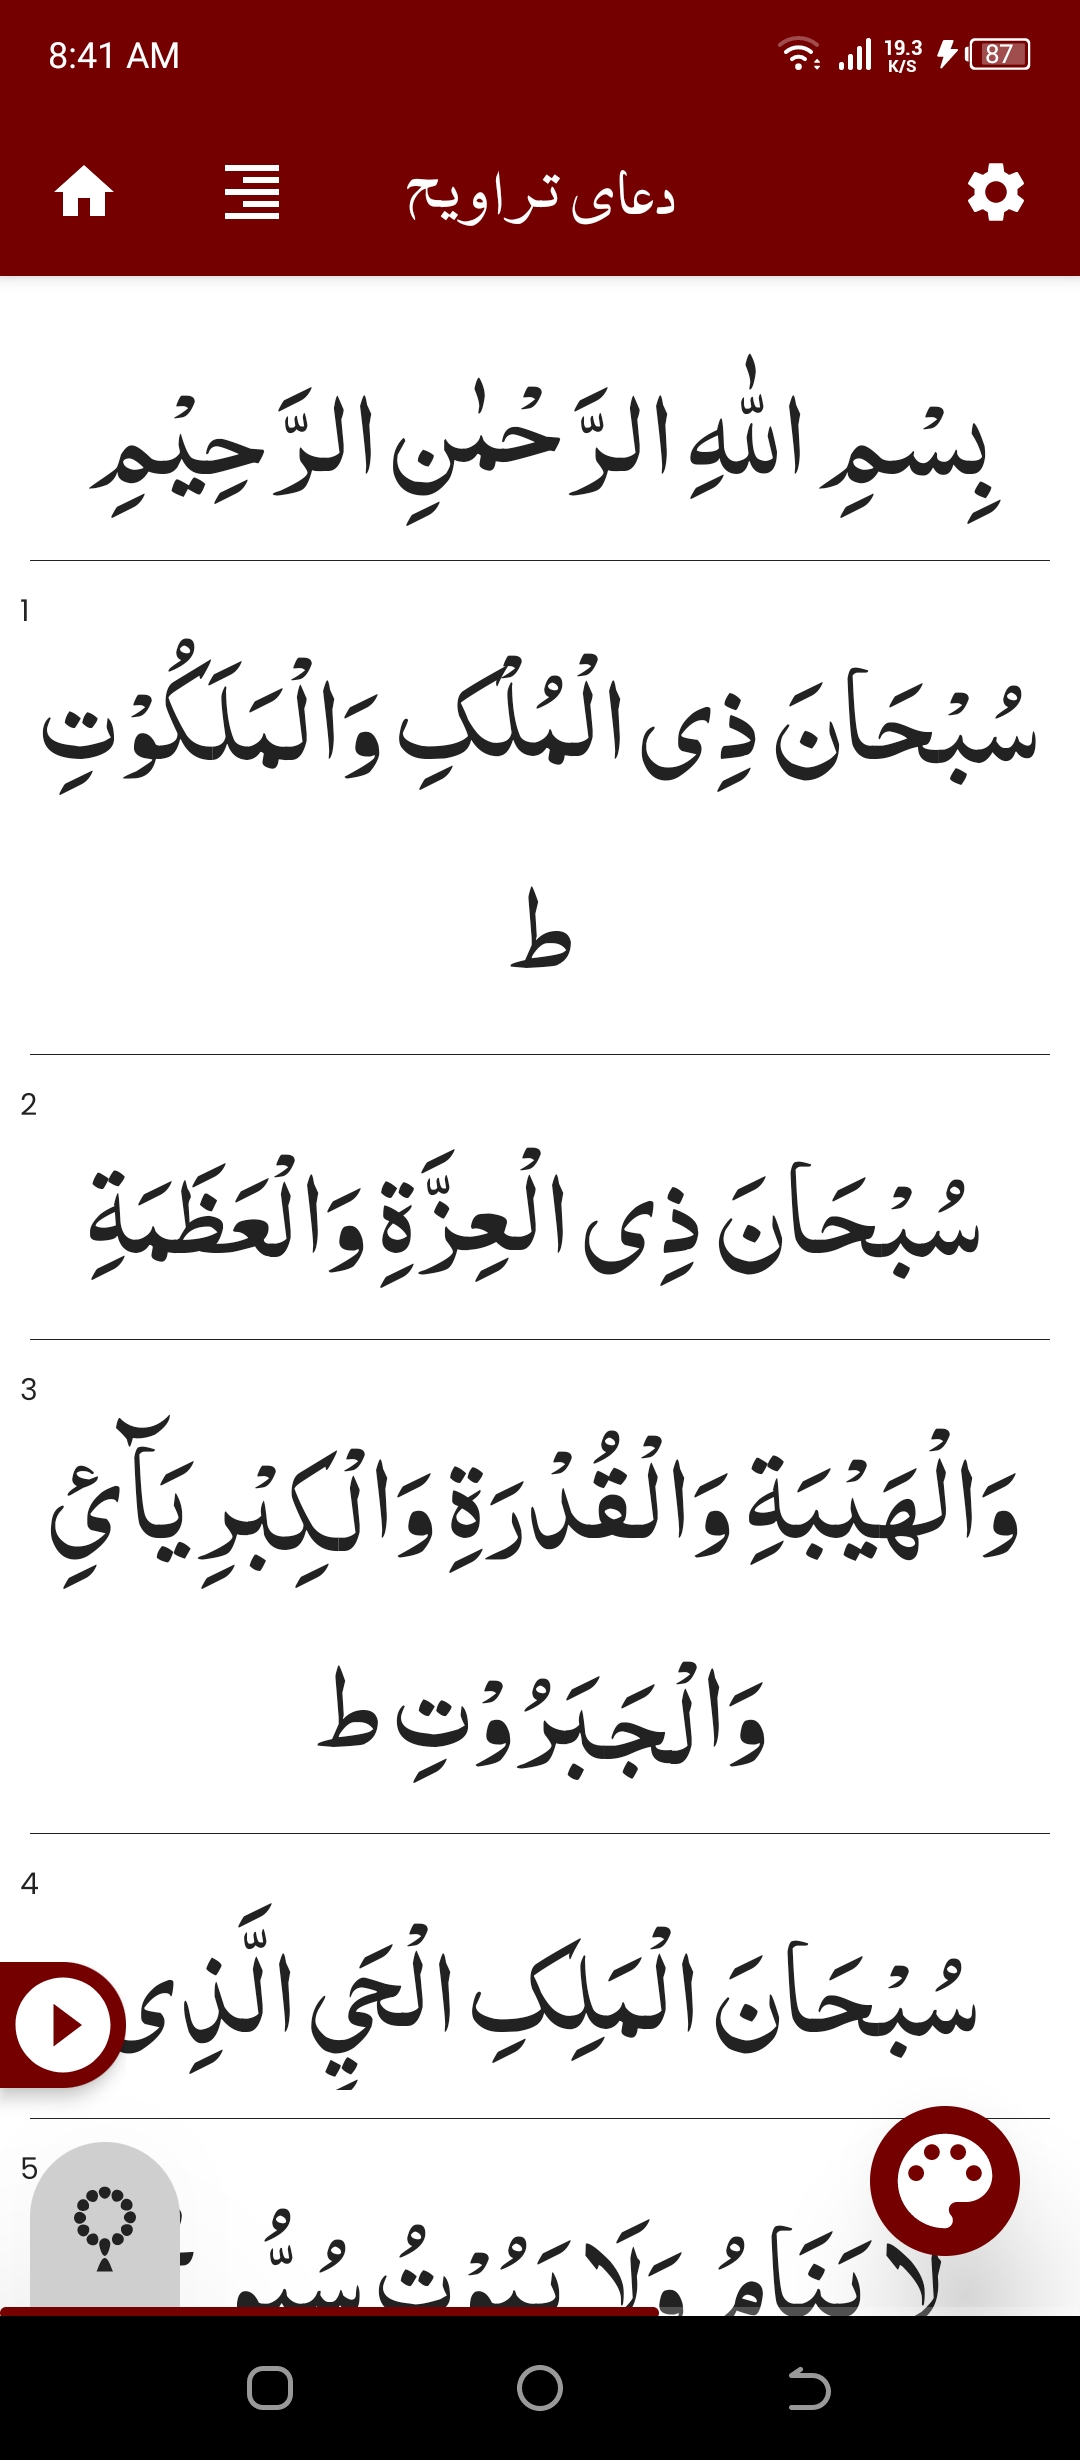 8:41 AM
19.3 K/S
87
دعای تراویح
بِسْمِ اللّٰهِ الرَّحْمٰنِ الرَّحِیْمِ
1
سُبْحَانَ ذِی الْمُلْکِ وَالْمَلَکُوْتِ
ط
2
سُبْحَانَ ذِی الْعِزَّةِ وَالْعَظَمَةِ
3
وَالْهَیْبَةِ وَالْقُدْرَةِ وَالْکِبْرِیَآئِ
وَالْجَبَرُوْتِ ط
4
سُبْحَانَ الْمَلِکِ الْحَيِ الَّذِی
5
لَا یَنَامُ وَلَا یَمُوْتُ